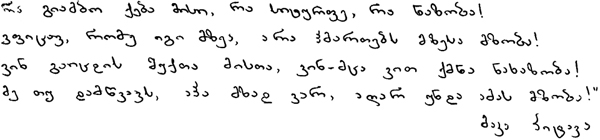 რა გიამბო ქება მისი, რა სიტურფე, რა ნაზობა!
ვფიცავ, რომე იგი მზეა, არა ჰმართებს მზესა მზობა!
ვინ გაიცდის შუქთა მისთა, ვინ-მცა ვით ქმნა ნახაზობა!
მე თუ დამწვავს, აჰა მზად ვარ, აღარ უნდა ამას მზობა!"
მაკა ჩიტავა